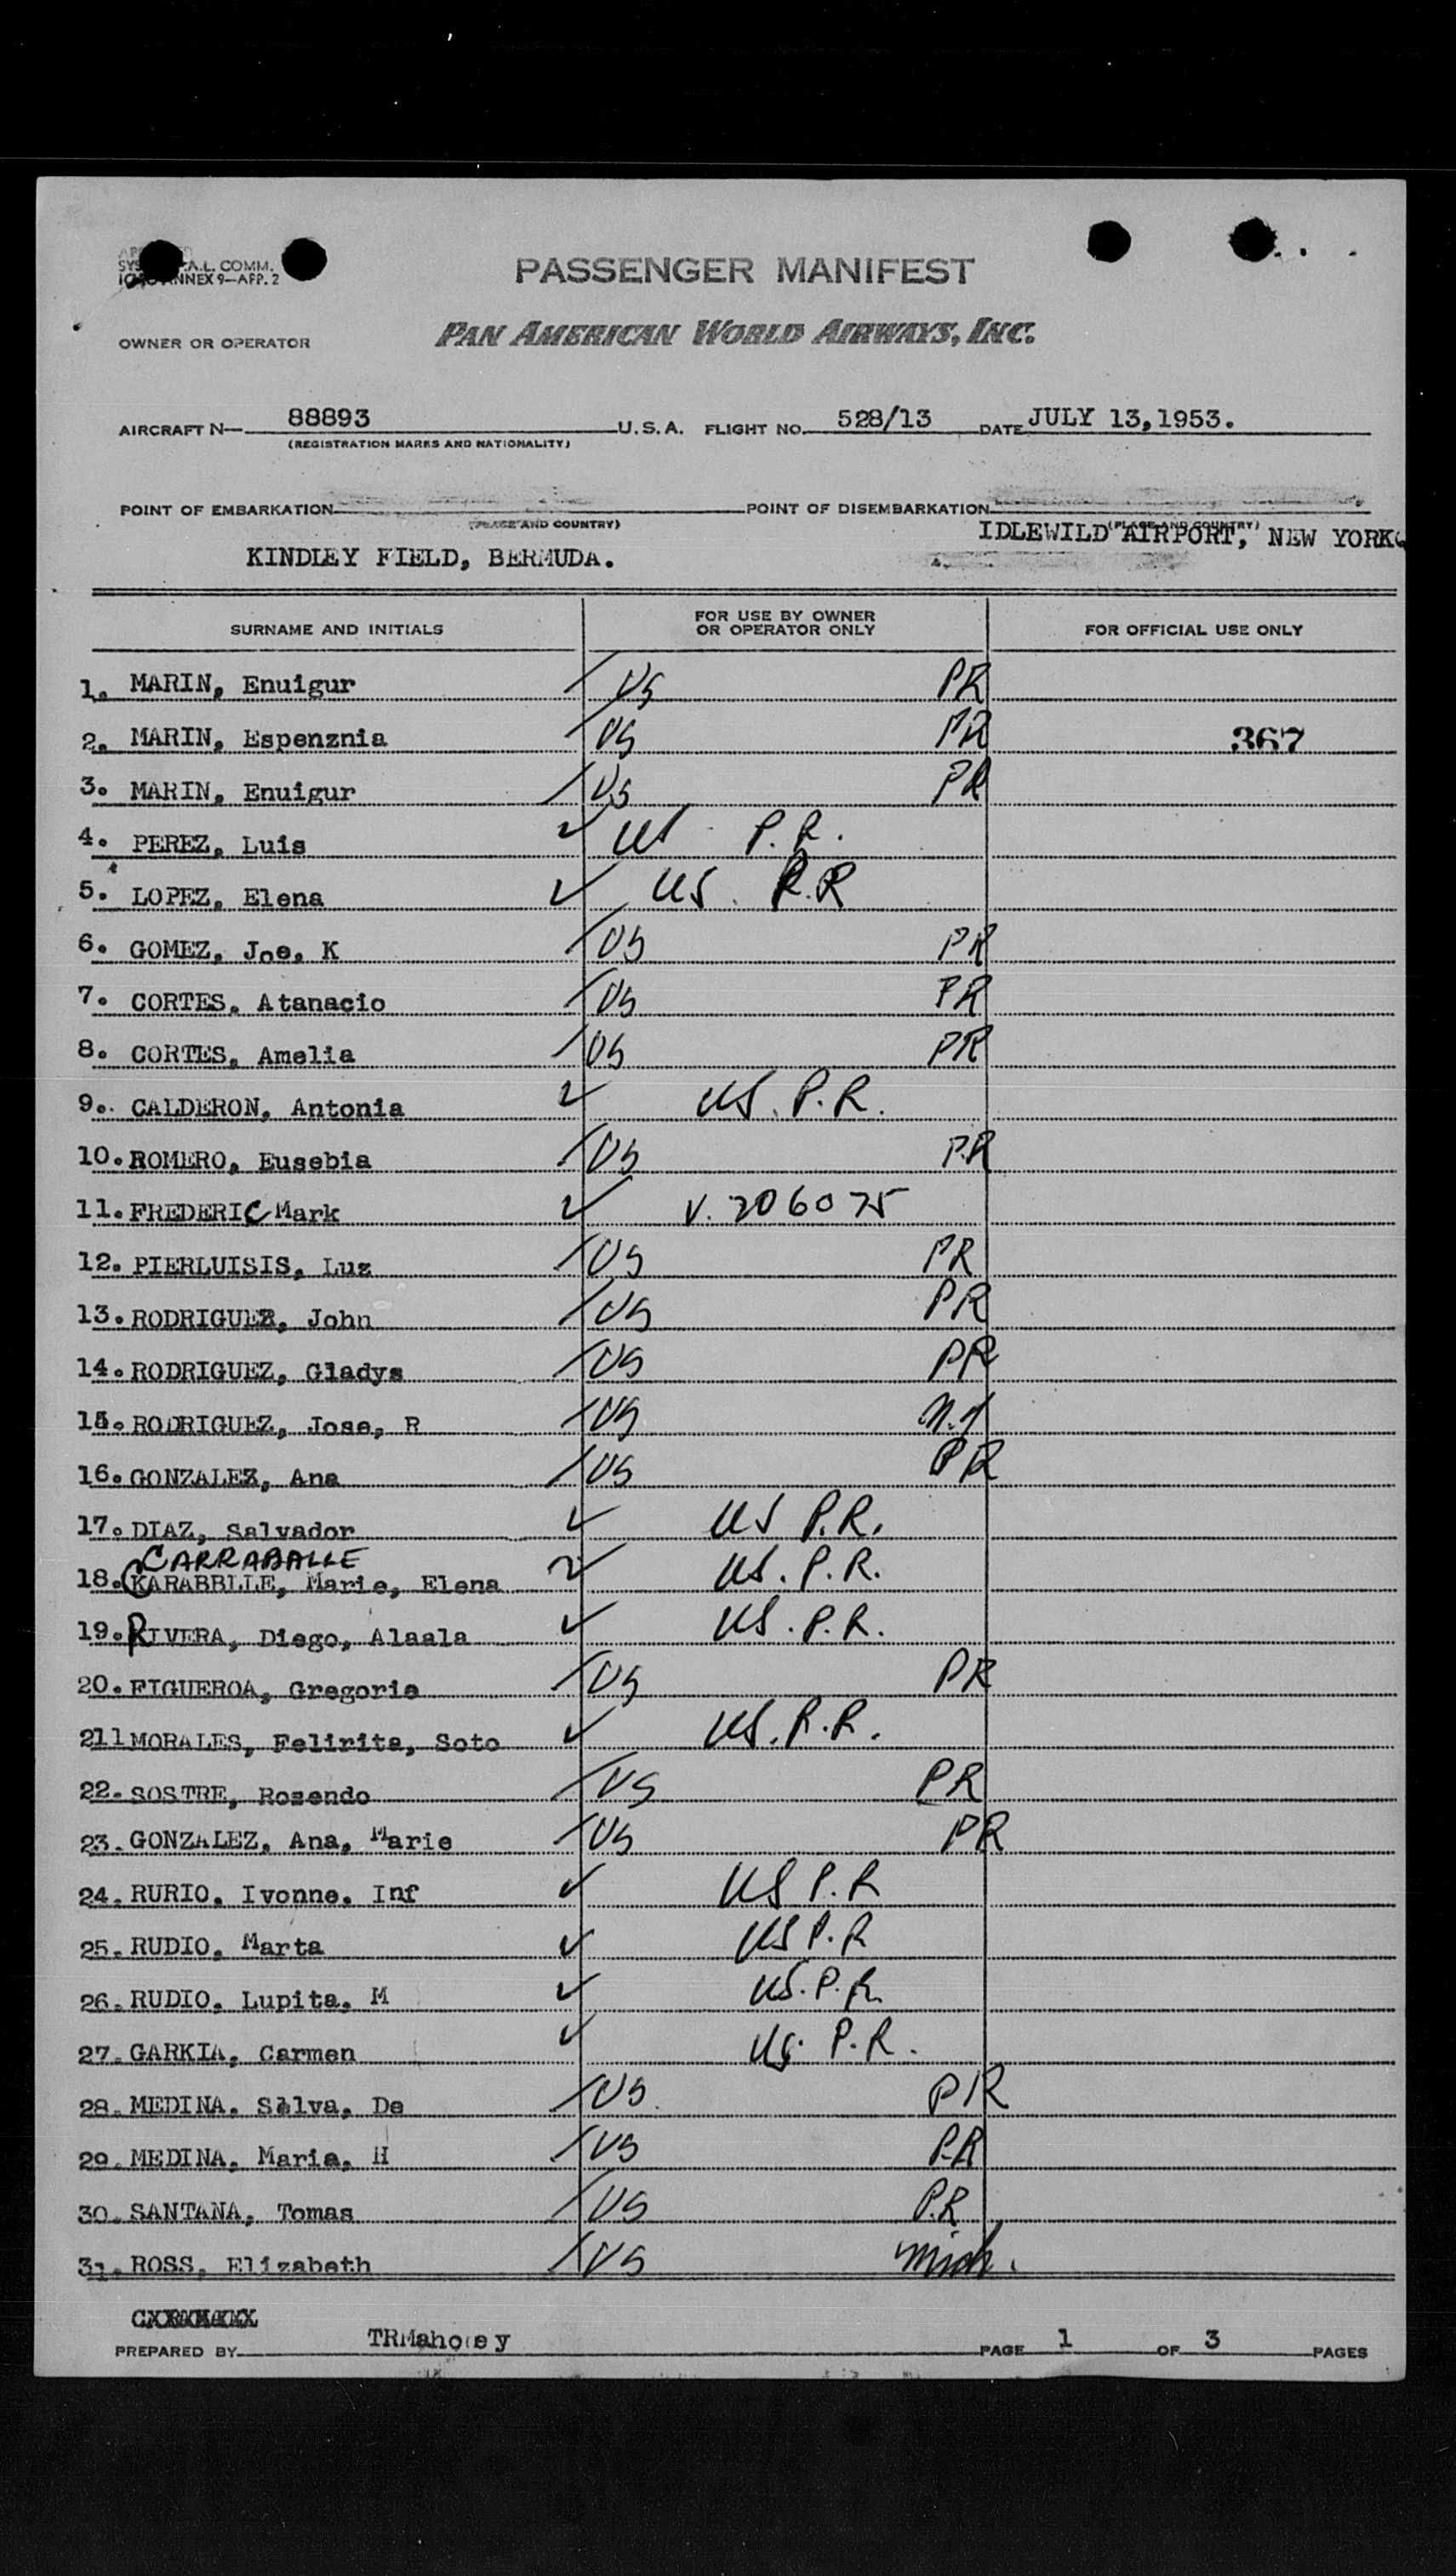 A.L. COMM.
ANNEX 9—APP. 2
PASSENGER MANIFEST
OWNER OR OPERATOR PAN AMERICAN WORLD AIRWAYS, INC.
AIRCRAFT N— 88893 U.S.A. FLIGHT NO. 528/13 DATE JULY 13,1953.
(REGISTRATION MARKS AND NATIONALITY)
POINT OF EMBARKATION POINT OF DISEMBARKATION
(PLACE AND COUNTRY) (PLACE AND COUNTRY)
KINDLEY FIELD, BERMUDA. IDLEWILD AIRPORT, NEW YORK
SURNAME AND INITIALS FOR USE BY OWNER OR OPERATOR ONLY FOR OFFICIAL USE ONLY
1. MARIN, Enuigur / US PR
2. MARIN, Espenznia / US PR 367
3. MARIN, Enuigur / US PR
4. PEREZ, Luis ✓ US P.R.
5. LOPEZ, Elena ✓ US. P.R
6. GOMEZ, Joe, K / US PR
7. CORTES, Atanacio / US PR
8. CORTES, Amelia / US PR
9. CALDERON, Antonia ✓ US. P.R.
10. ROMERO, Eusebia / US P.R
11. FREDERIC Mark ✓ V. 206075
12. PIERLUISIS, Luz / US PR
13. RODRIGUEZ, John / US PR
14. RODRIGUEZ, Gladys / US PR
15. RODRIGUEZ, Jose, R / US N.Y
16. GONZALEZ, Ana / US PR
17. DIAZ, Salvador ✓ US P.R.
CARRABALLE
18. KARABBLLE, Marie, Elena ✓ US. P.R.
19. RIVERA, Diego, Alaala ✓ US. P.R.
20. FIGUEROA, Gregorie / US PR
211 MORALES, Felirita, Soto ✓ US. P.R.
22. SOSTRE, Rosendo / US PR
23. GONZALEZ, Ana, Marie / US PR
24. RURIO, Ivonne. Inf ✓ US P.R
25. RUDIO, Marta ✓ US P.R
26. RUDIO, Lupita, M ✓ US. P.R.
27. GARKIA, Carmen ✓ US. P.R.
28. MEDINA, Salva, De / US. PR
29. MEDINA, Maria, H / US P.R
30. SANTANA, Tomas / US P.R
31. ROSS, Elizabeth / US Mich.
PREPARED BY TRMahoney PAGE 1 OF 3 PAGES